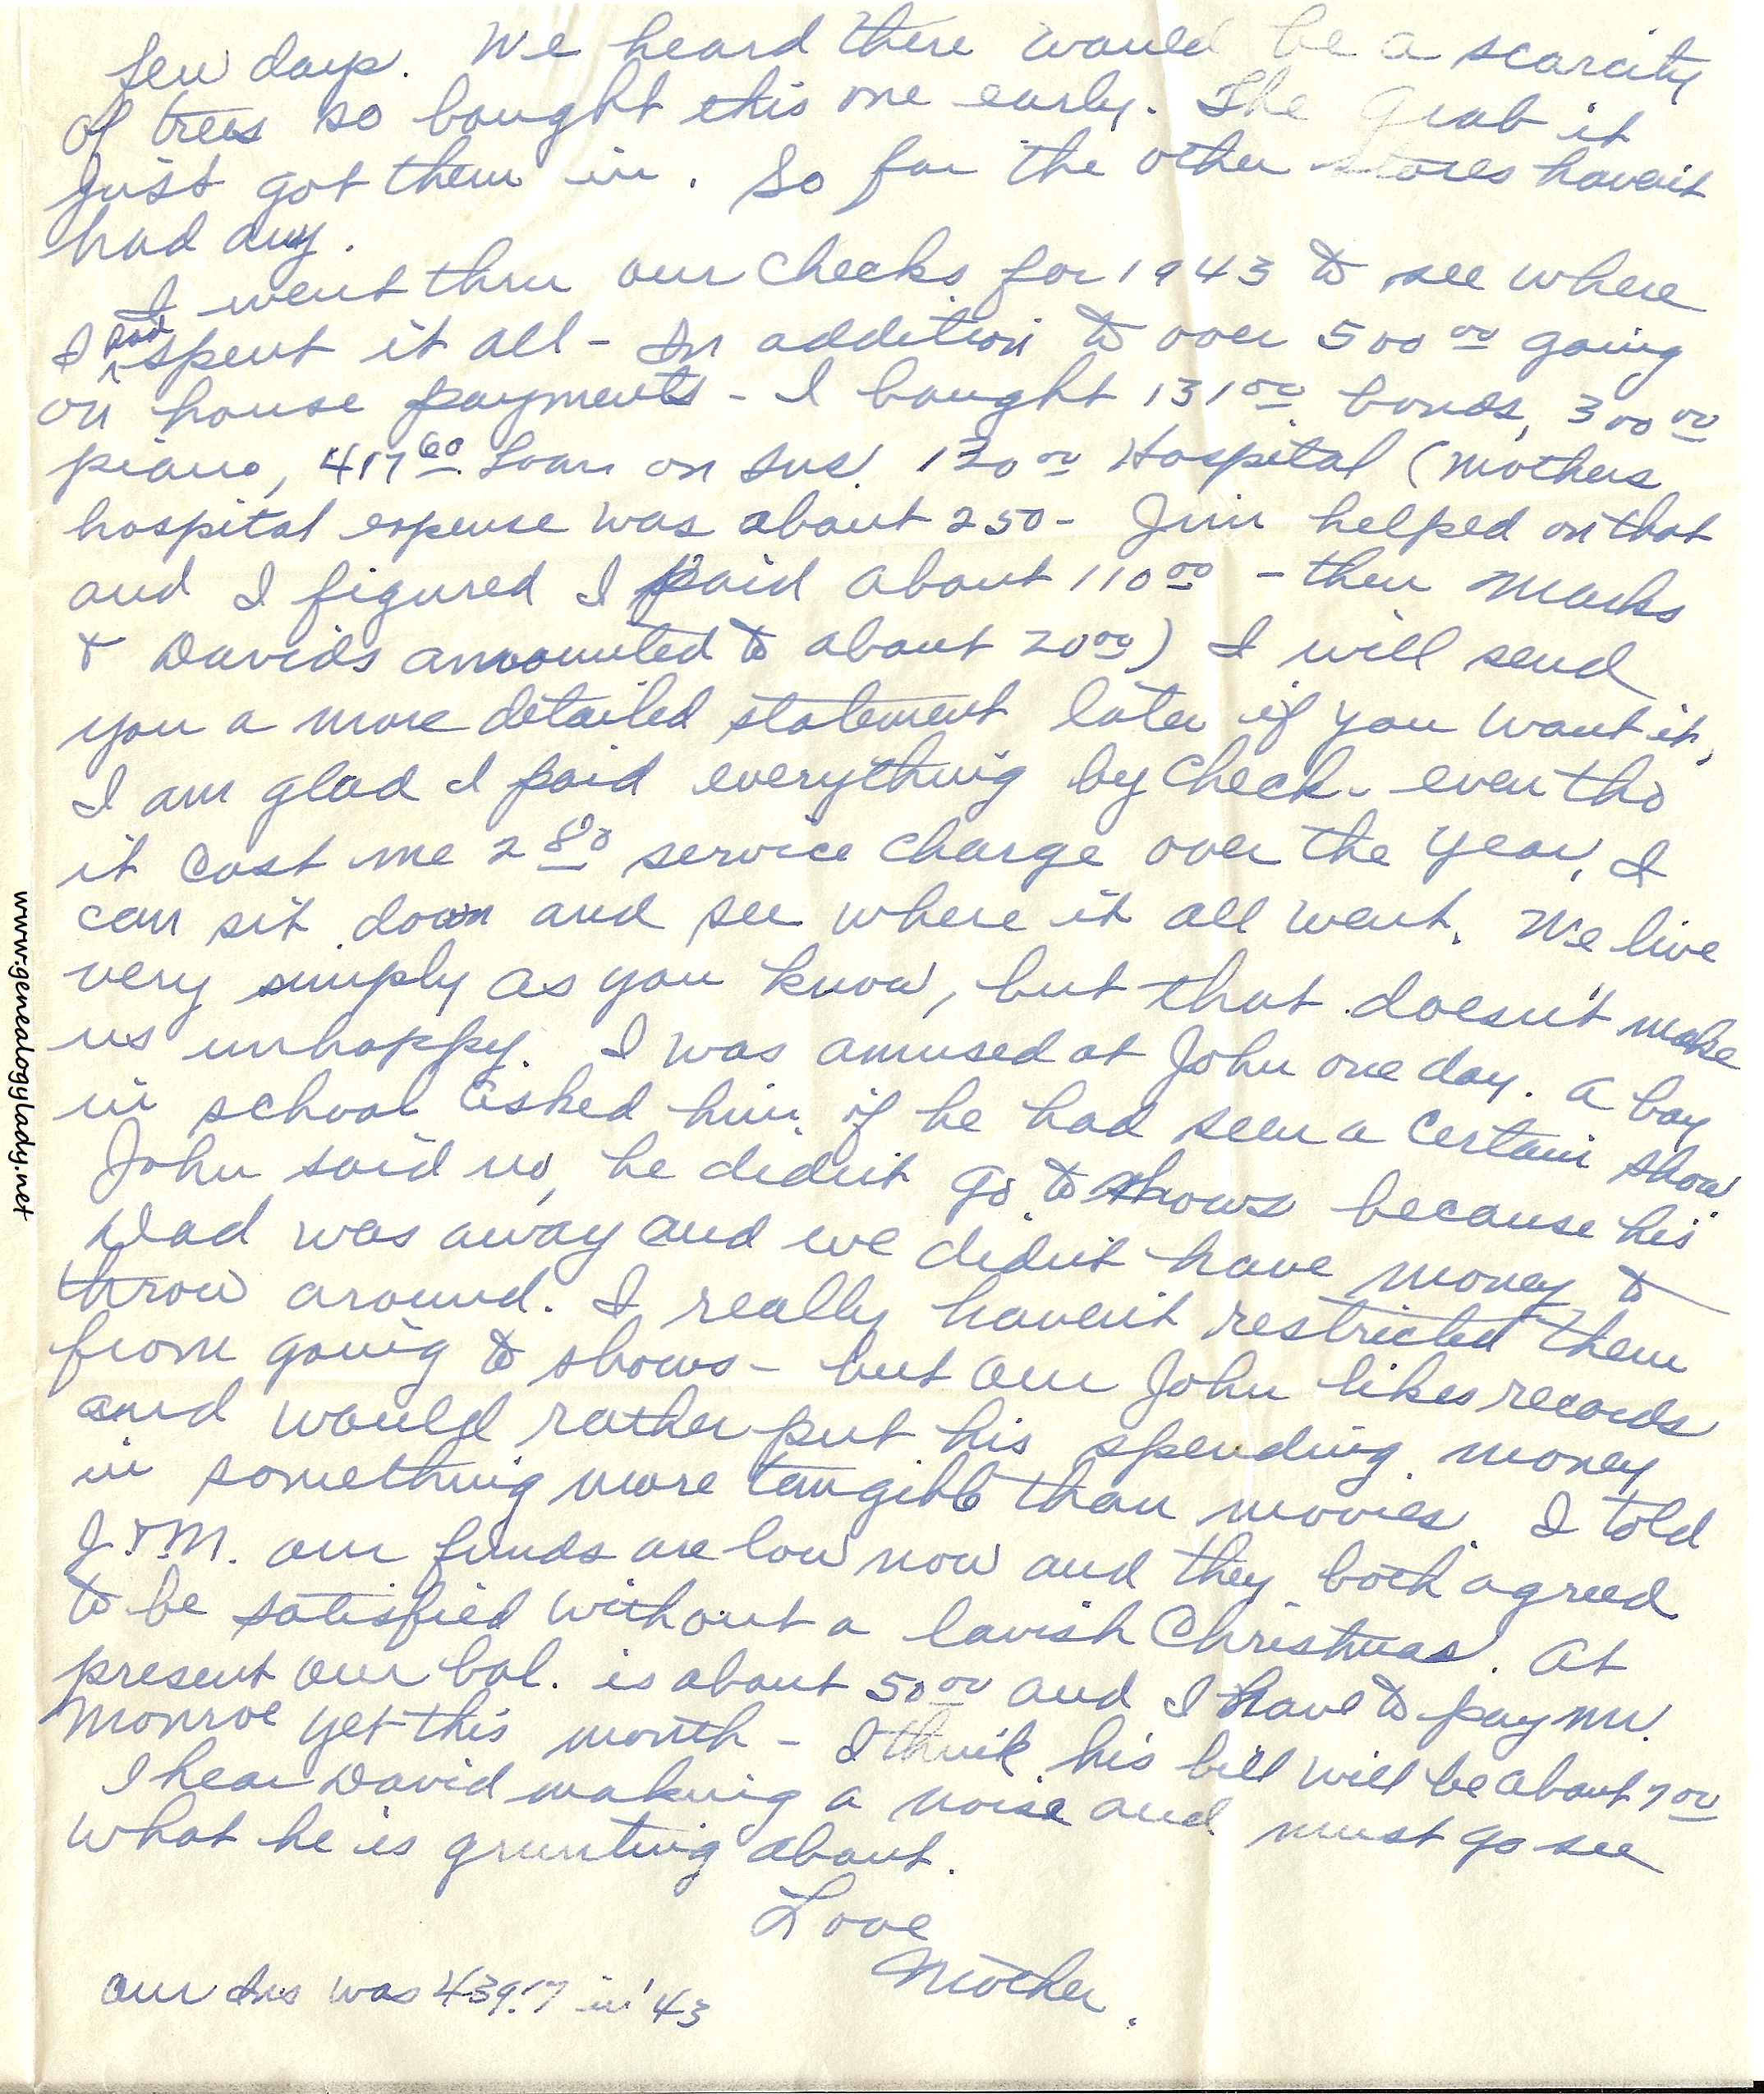 few days. We heard there would be a scarcity
of trees so bought this one early. The Grab it
just got them in. So far the other stores haven't
had any.
I went thru our checks for 1943 to see where
I had spent it all - In addition to over 500 00 going
on house payments - I bought 131 00 bonds, 300 00
piano, 417 60 Loan on Ins. 130 00 Hospital (Mothers
hospital expense was about 250 - Jim helped on that
and I figured I paid about 110 00 - then Marks
& Davids amounted to about 20 00) I will send
you a more detailed statement later if you want it,
I am glad I paid everything by check - even tho
it cost me 2 80 service charge over the year, I
can sit down and see where it all went. We live
very simply as you know, but that doesn't make
us unhappy. I was amused at John one day. A boy
in school asked him if he had seen a certain show
John said no, he didn't go to shows because his
Dad was away and we didn't have money to
throw around. I really haven't restricted them
from going to shows - but our John likes records
and would rather put his spending money
in something more tangible than movies. I told
J. & M. our funds are low now and they both agreed
to be satisfied without a lavish Christmas. At
present our bal. is about 50 00 and I have to pay Mr.
Monroe yet this month - I think his bill will be about 7 00
I hear David making a noise and must go see
what he is grunting about.
Love
Mother.
our Ins was in '43
www.genealogylady.net